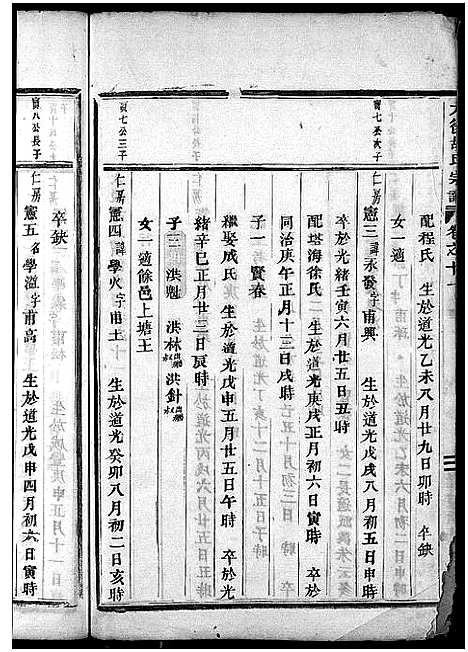 宗譜 卷之十一
配程氏 生於道光乙未八月廿九日卯時 卒缺
女一適
寶七公次子
仁房
憲三諱永發字甫興 生於道光戊戌八月初五日申時
卒於光緒壬寅六月廿五日丑時
配塔海徐氏 生於道光庚戌正月初六日寅時 卒於
同治庚午正月十三日戌時
子一 賢春
繼娶成氏 生於道光戊申五月廿五日午時 卒於光
緒辛巳正月廿三日辰時
子三 洪魁 洪林 洪針
女一適餘邑上塘王
七公三子
仁房
憲四諱學火字甫土 生於道光癸卯八月初二日亥時
卒缺
寶八公長子
仁房
憲五名學滋字甫高 生於道光戊申四月初六日寅時